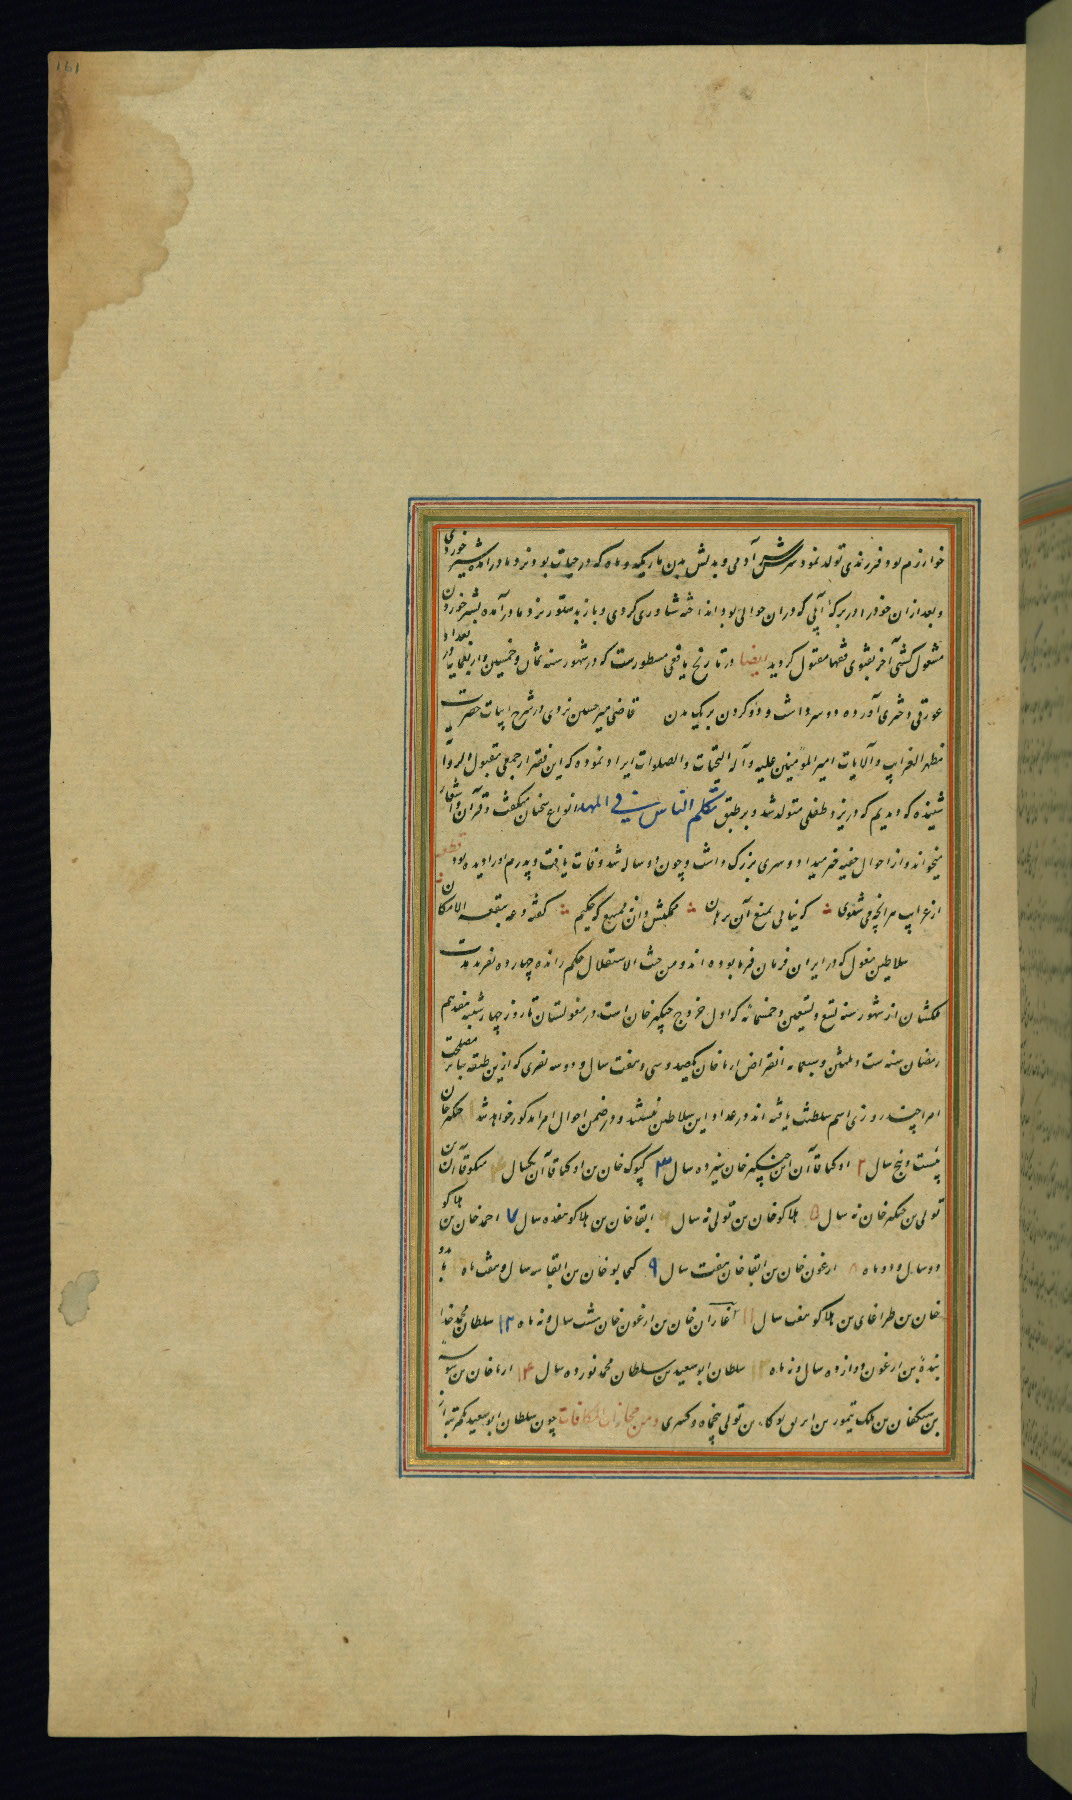 ۱۶۱
خوارزم بود فرزندی تولد نمود سرش آدمی و بدنش بدن مار یکچند ماه که در حیات بود نزد مادر آمده شیر خوردی
و بعد ازان خود را در برکه آبی که دران حوالی بود انداخته شناوری کردی و باز بدستور نزد مادر آمده بشیر خوردن
مشغول گشتی آخر بفتوی فقها مقتول گردید ایضا در تاریخ یافعی مسطورست که در شهور سنه ثمان و خمسین و اربعمایه در بغداد
عورتی دختری آورده دو سر داشت و دو گردن بر یک بدن قاضی میر حسین یزدی در شرح ابیات حضرت
مظهر الغرایب والایات امیر المؤمنین علیه و آله التحیات والصلوات ایراد نموده که این فقیر از جمعی مقبول الروایه
شنیده که دیدیم که در یزد طفلی متولد شد و بر طبق تکلم الناس فی المهد انواع سخنان میگفت و قرآن و اشعار
میخواند و از احوال خفیه خبر میداد و سری بزرگ داشت و چون دو سال شد وفات یافت و پدرم او را دیده بود قطعه
از غرایب هر آنچه می شنوی که نیابی بمنع آن برهان ممکنش دان نه ممتنع که حکیم گفته دعه ببقعة الامکان
سلاطین مغول که در ایران فرمان فرما بوده اند و من حیث الاستقلال حکم رانده چهارده نفرند مدت
ملکشان از شهور سنه تسع و تسعین و خمسمائه که اول خروج چنگیز خان است در مغولستان تا روز چهارشنبه هفدهم
رمضان سنه ست و ثلثین و سبعمائه انقراض ارپا خان یکصد و سی و هفت سال و دو سه نفری که ازین طبقه بنابر مصلحت
امرا چند روزی اسم سلطنت یافته اند در عداد این سلاطین نیستند و در ضمن احوال امرا مذکور خواهد شد ۱ چنگیز خان
بیست و پنج سال ۲ اوکتا قاآن بن چنگیز خان سیزده سال ۳ کیوک خان بن اوکتا قاآن یکسال ۴ منکو قاآن بن
تولی بن چنگیز خان نه سال ۵ هلاکو خان بن تولی نه سال ۶ ابقا خان بن هلاکو هفده سال ۷ احمد خان بن هلاکو
دو سال و دو ماه ۸ ارغون خان بن ابقا خان هفت سال ۹ کیخاتو خان بن ابقا سه سال و هفت ماه ۱۰ بایدو
خان بن طراغای بن هلاکو هفت سال ۱۱ غازان خان بن ارغون خان هشت سال و نه ماه ۱۲ سلطان محمد خدا
بنده بن ارغون دوازده سال و نه ماه ۱۳ سلطان ابو سعید بن سلطان محمد نوزده سال ۱۴ ارپا خان بن سوسه
بن سنکقان بن ملک تیمور بن اریق بوکا بن تولی پنجماه و کسری و من مجازات المکافات چون سلطان ابو سعید